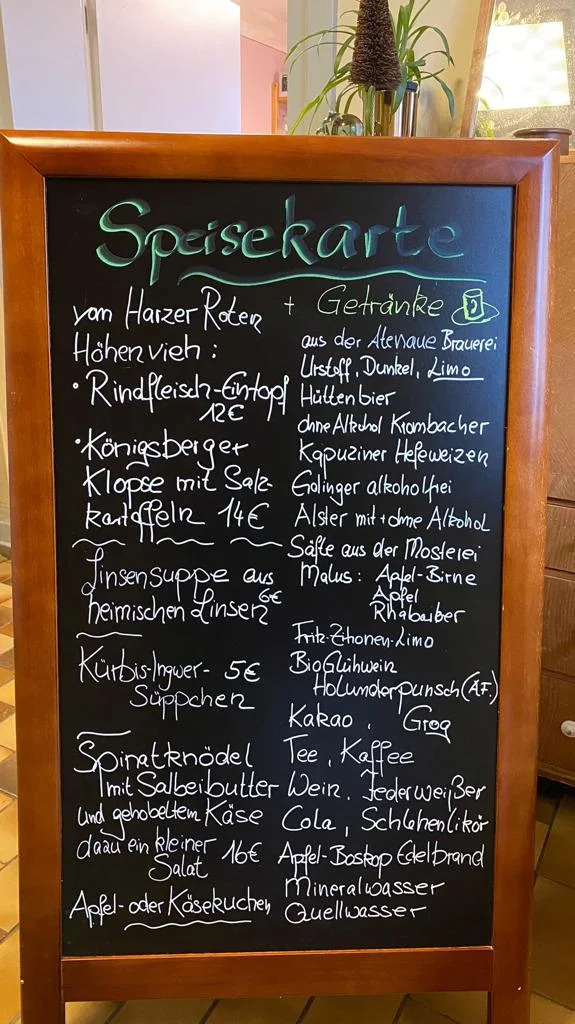 Speisekarte
vom Harzer Roten
Höhenvieh :
• Rindfleisch-Eintopf
12€
• Königsberger
Klopse mit Salz-
kartoffeln 14€
Linsensuppe aus
heimischen Linsen 6€
Kürbis-Ingwer- 5€
Süppchen
Spinatknödel
mit Salbeibutter
und gehobeltem Käse
dazu ein kleiner
Salat 16€
Apfel- oder Käsekuchen
+ Getränke
aus der Brauerei
Urstoff, Dunkel, Limo
Hüttenbier
ohne Alkohol Krombacher
Kapuziner Hefeweizen
alkoholfrei
Alster mit + ohne Alkohol
Säfte aus der Mosterei
Malus : Apfel-Birne
Apfel
Rhabarber
Fritz-Zitronen-Limo
Bio Glühwein
Holunderpunsch (A.F.)
Kakao , Grog
Tee , Kaffee
Wein , Federweißer
Cola , Schlehenlikör
Apfel-Boskop Edelbrand
Mineralwasser
Quellwasser